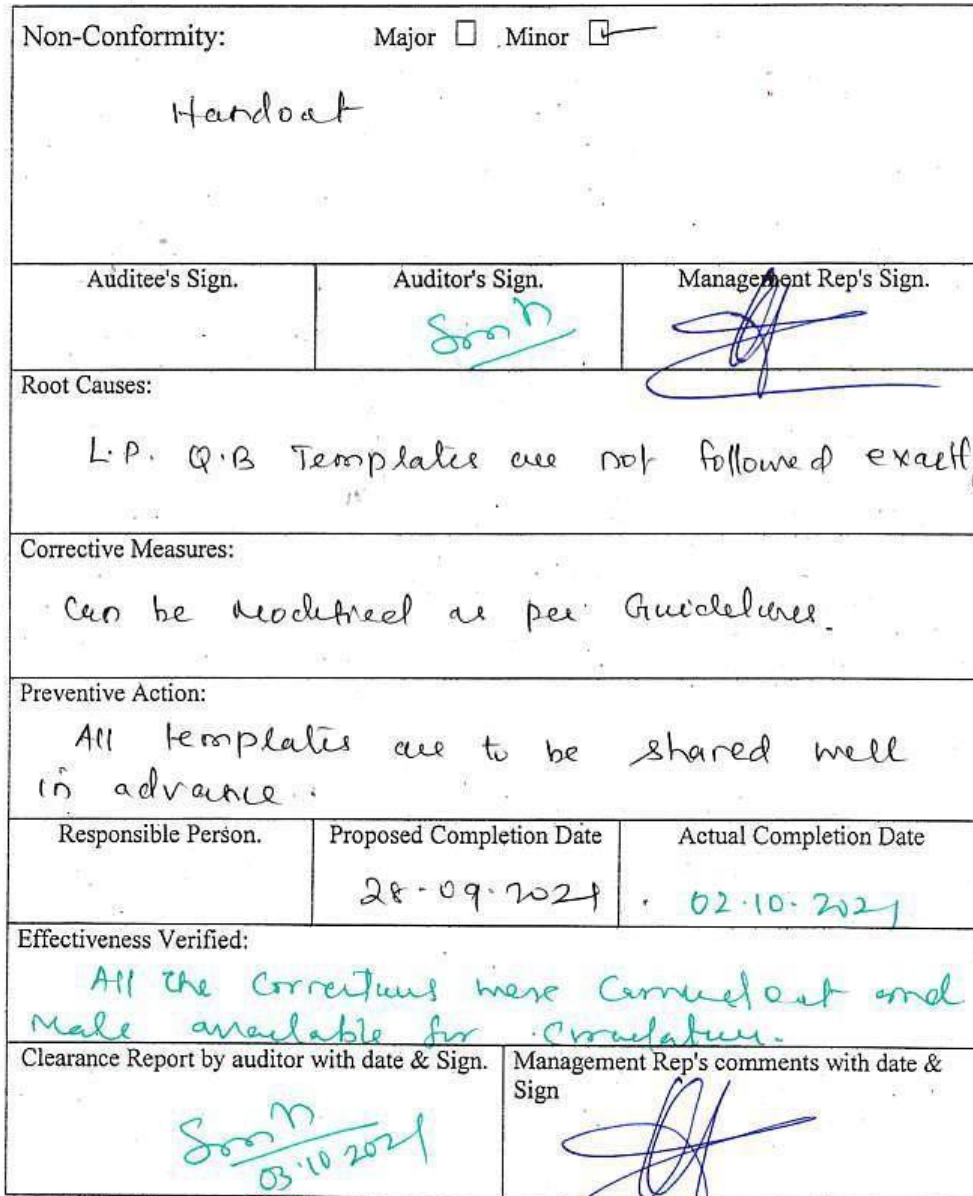 Non-Conformity: Major ☐ Minor ☑
Handout
Auditee's Sign. Auditor's Sign. Management Rep's Sign.
Root Causes:
L.P. Q.B Templates are not followed exactl
Corrective Measures:
Can be modified as per Guidelines.
Preventive Action:
All templates are to be shared well
in advance.
Responsible Person. Proposed Completion Date Actual Completion Date
28-09-2021 02.10.2021
Effectiveness Verified:
All the corrections were carried out and
Made available for circulation.
Clearance Report by auditor with date & Sign. Management Rep's comments with date &
Sign
03.10 2021